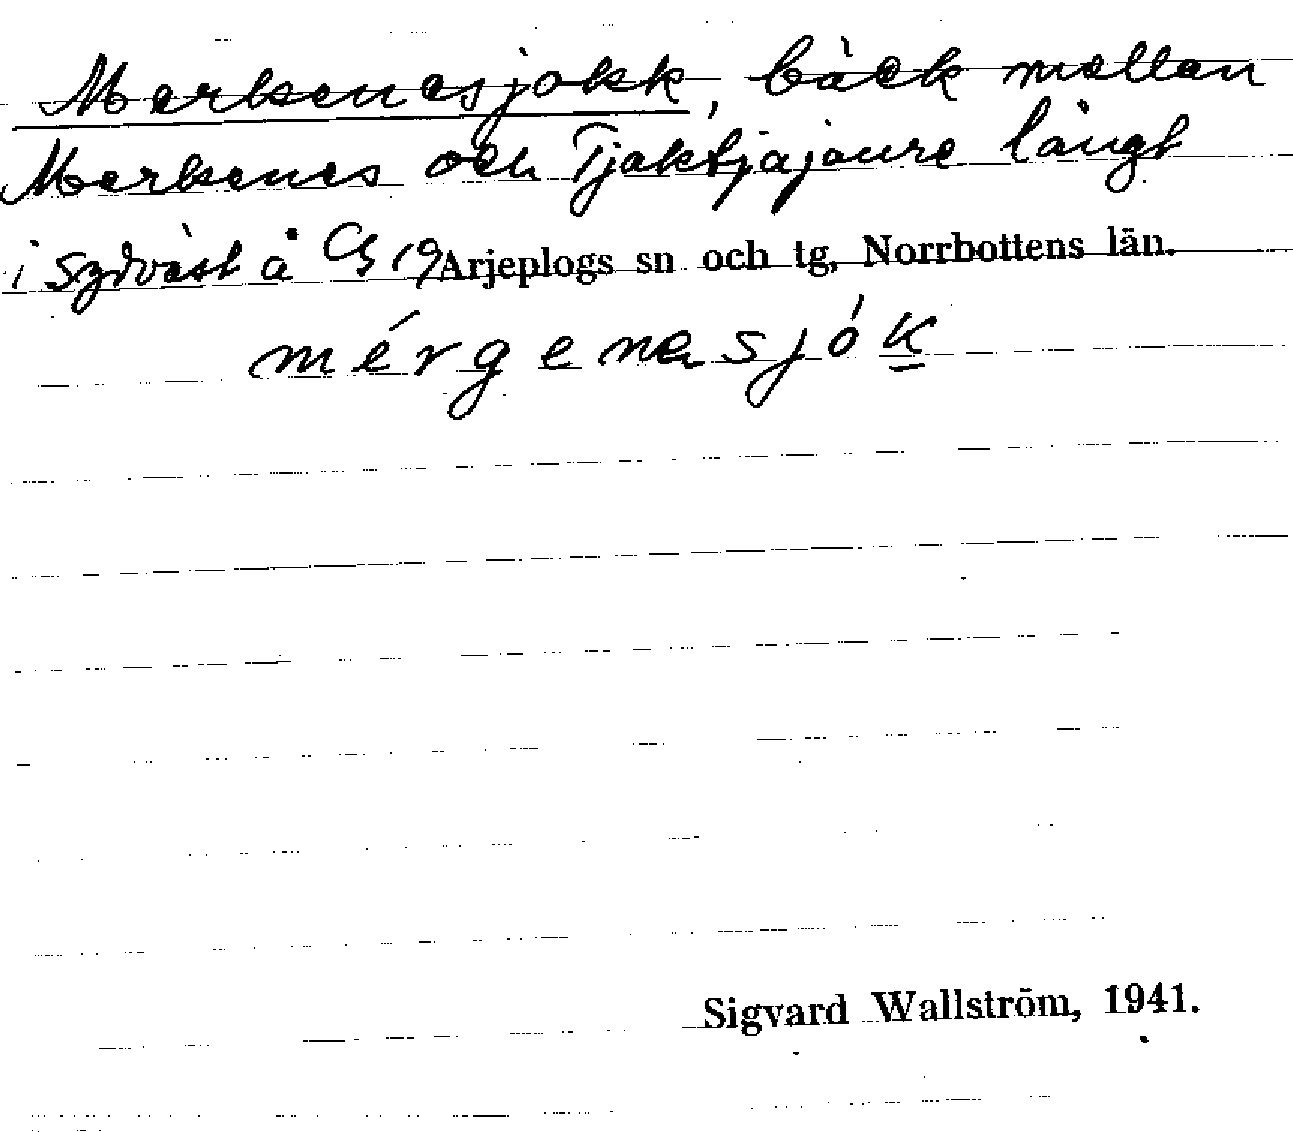 Merkenesjokk, bäck mellan
Merkenes och Tjaktjajaure långt
i sydväst å Cs 19 Arjeplogs sn och tg, Norrbottens län.
mérgenesjók
Sigvard Wallström, 1941.